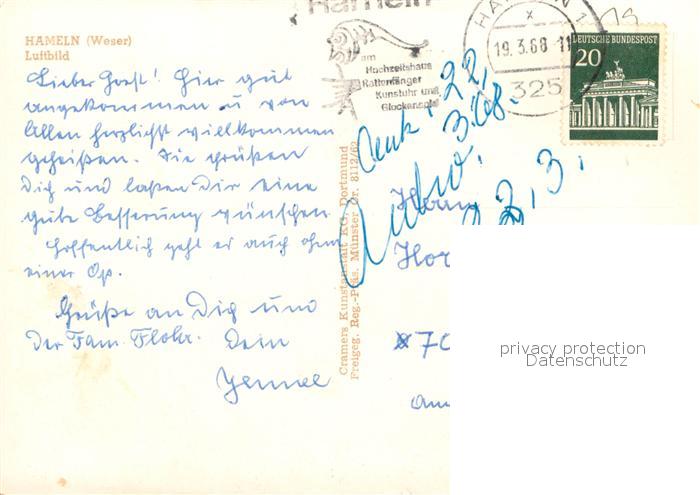 HAMELN (Weser)
Luftbild
Lieber Horst! Hier gut
angekommen u von
Allen herzlichst willkommen
geheißen. Sie grüßen
Dich und laßen Dir eine
gute Besserung wünschen
Hoffentlich geht es auch ohne
einer Op.
Grüße an Dich und
der Fam. Flohr. Dein
Hameln
am
Hochzeitshaus
Rattenfänger
Kunstuhr und
Glockenspiel
HAMELN 1
19.3.68-11
325
DEUTSCHE BUNDESPOST
20
22.
3.68.
22,3.
Cramers Kunstanstalt KG, Dortmund
Freigeg. Reg.-Präs. Münster Nr. 8112/62
Herrn
Hor
70
privacy protection
Datenschutz